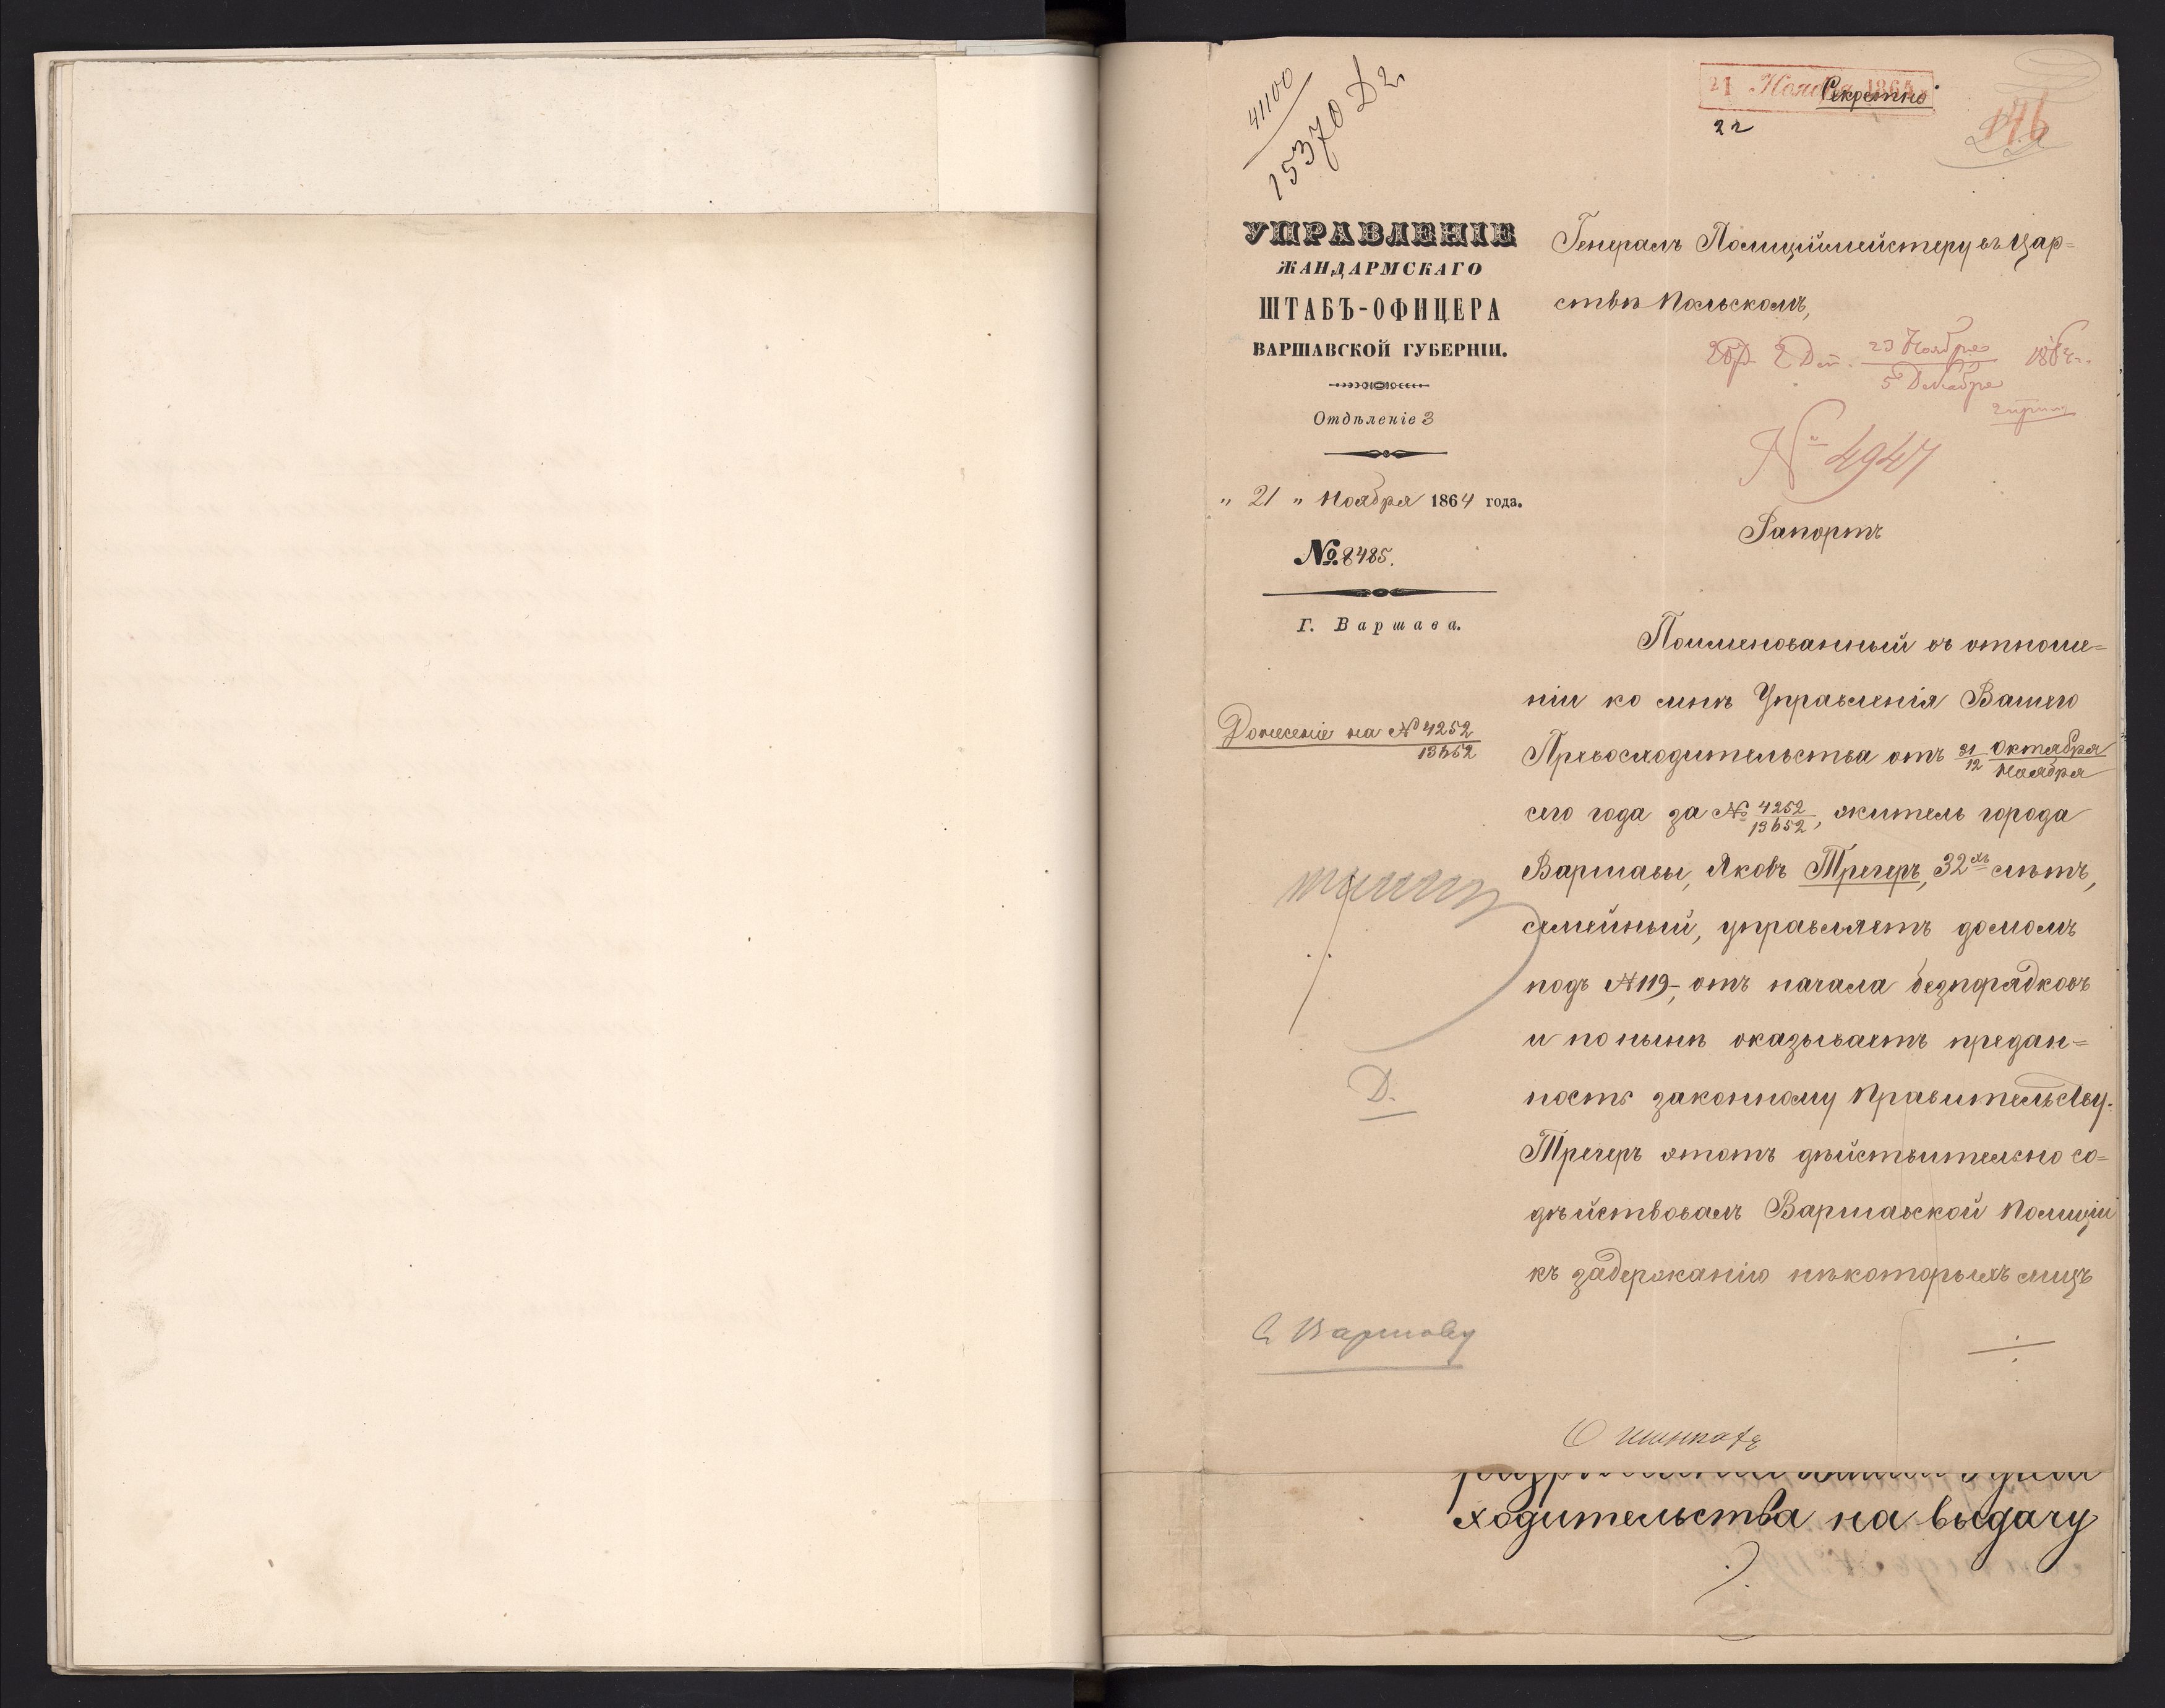 41100
15370 Д2.
21 Ноября 1864
Секретно
22
146
УПРАВЛЕНІЕ
ЖАНДАРМСКАГО
ШТАБЪ-ОФИЦЕРА
ВАРШАВСКОЙ ГУБЕРНІИ.
Отдѣленіе 3
„ 21 „ Ноября 1864 года.
№ 8485.
Г. Варшава.
Донесеніе на № 4252
13652
Генералъ Полиціймейстеру въ Цар=
ствѣ Польскомъ,
23 Ноября 1864 г.
5 Декабря
№ 4947
Рапортъ
Поименованный въ отноше=
ніи ко мнѣ Управленія Вашего
Превосходительства отъ 31/12 Октября/Ноября
сего года за № 4252/13652, житель города
Варшавы, Яковъ Трегеръ, 32хъ лѣтъ,
семейный, управляетъ домомъ
подъ № 119, отъ начала безпорядковъ
и по нынѣ оказываетъ предан=
ность законному Правительству.
Трегеръ этотъ дѣйствительно со=
дѣйствовалъ Варшавской Полиціи
къ задержанію нѣкоторыхъ лицъ
Д.
Варшаву
О шинкахъ
ходительства на выдачу